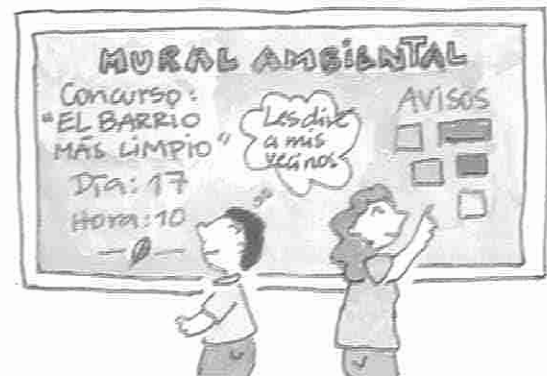 MURAL AMBiENTAL
Concurso:
"EL BARRIO
MÁS LiMPiO"
Día: 17
Hora: 10
Les diré
a mis
vecinos
AVISOS